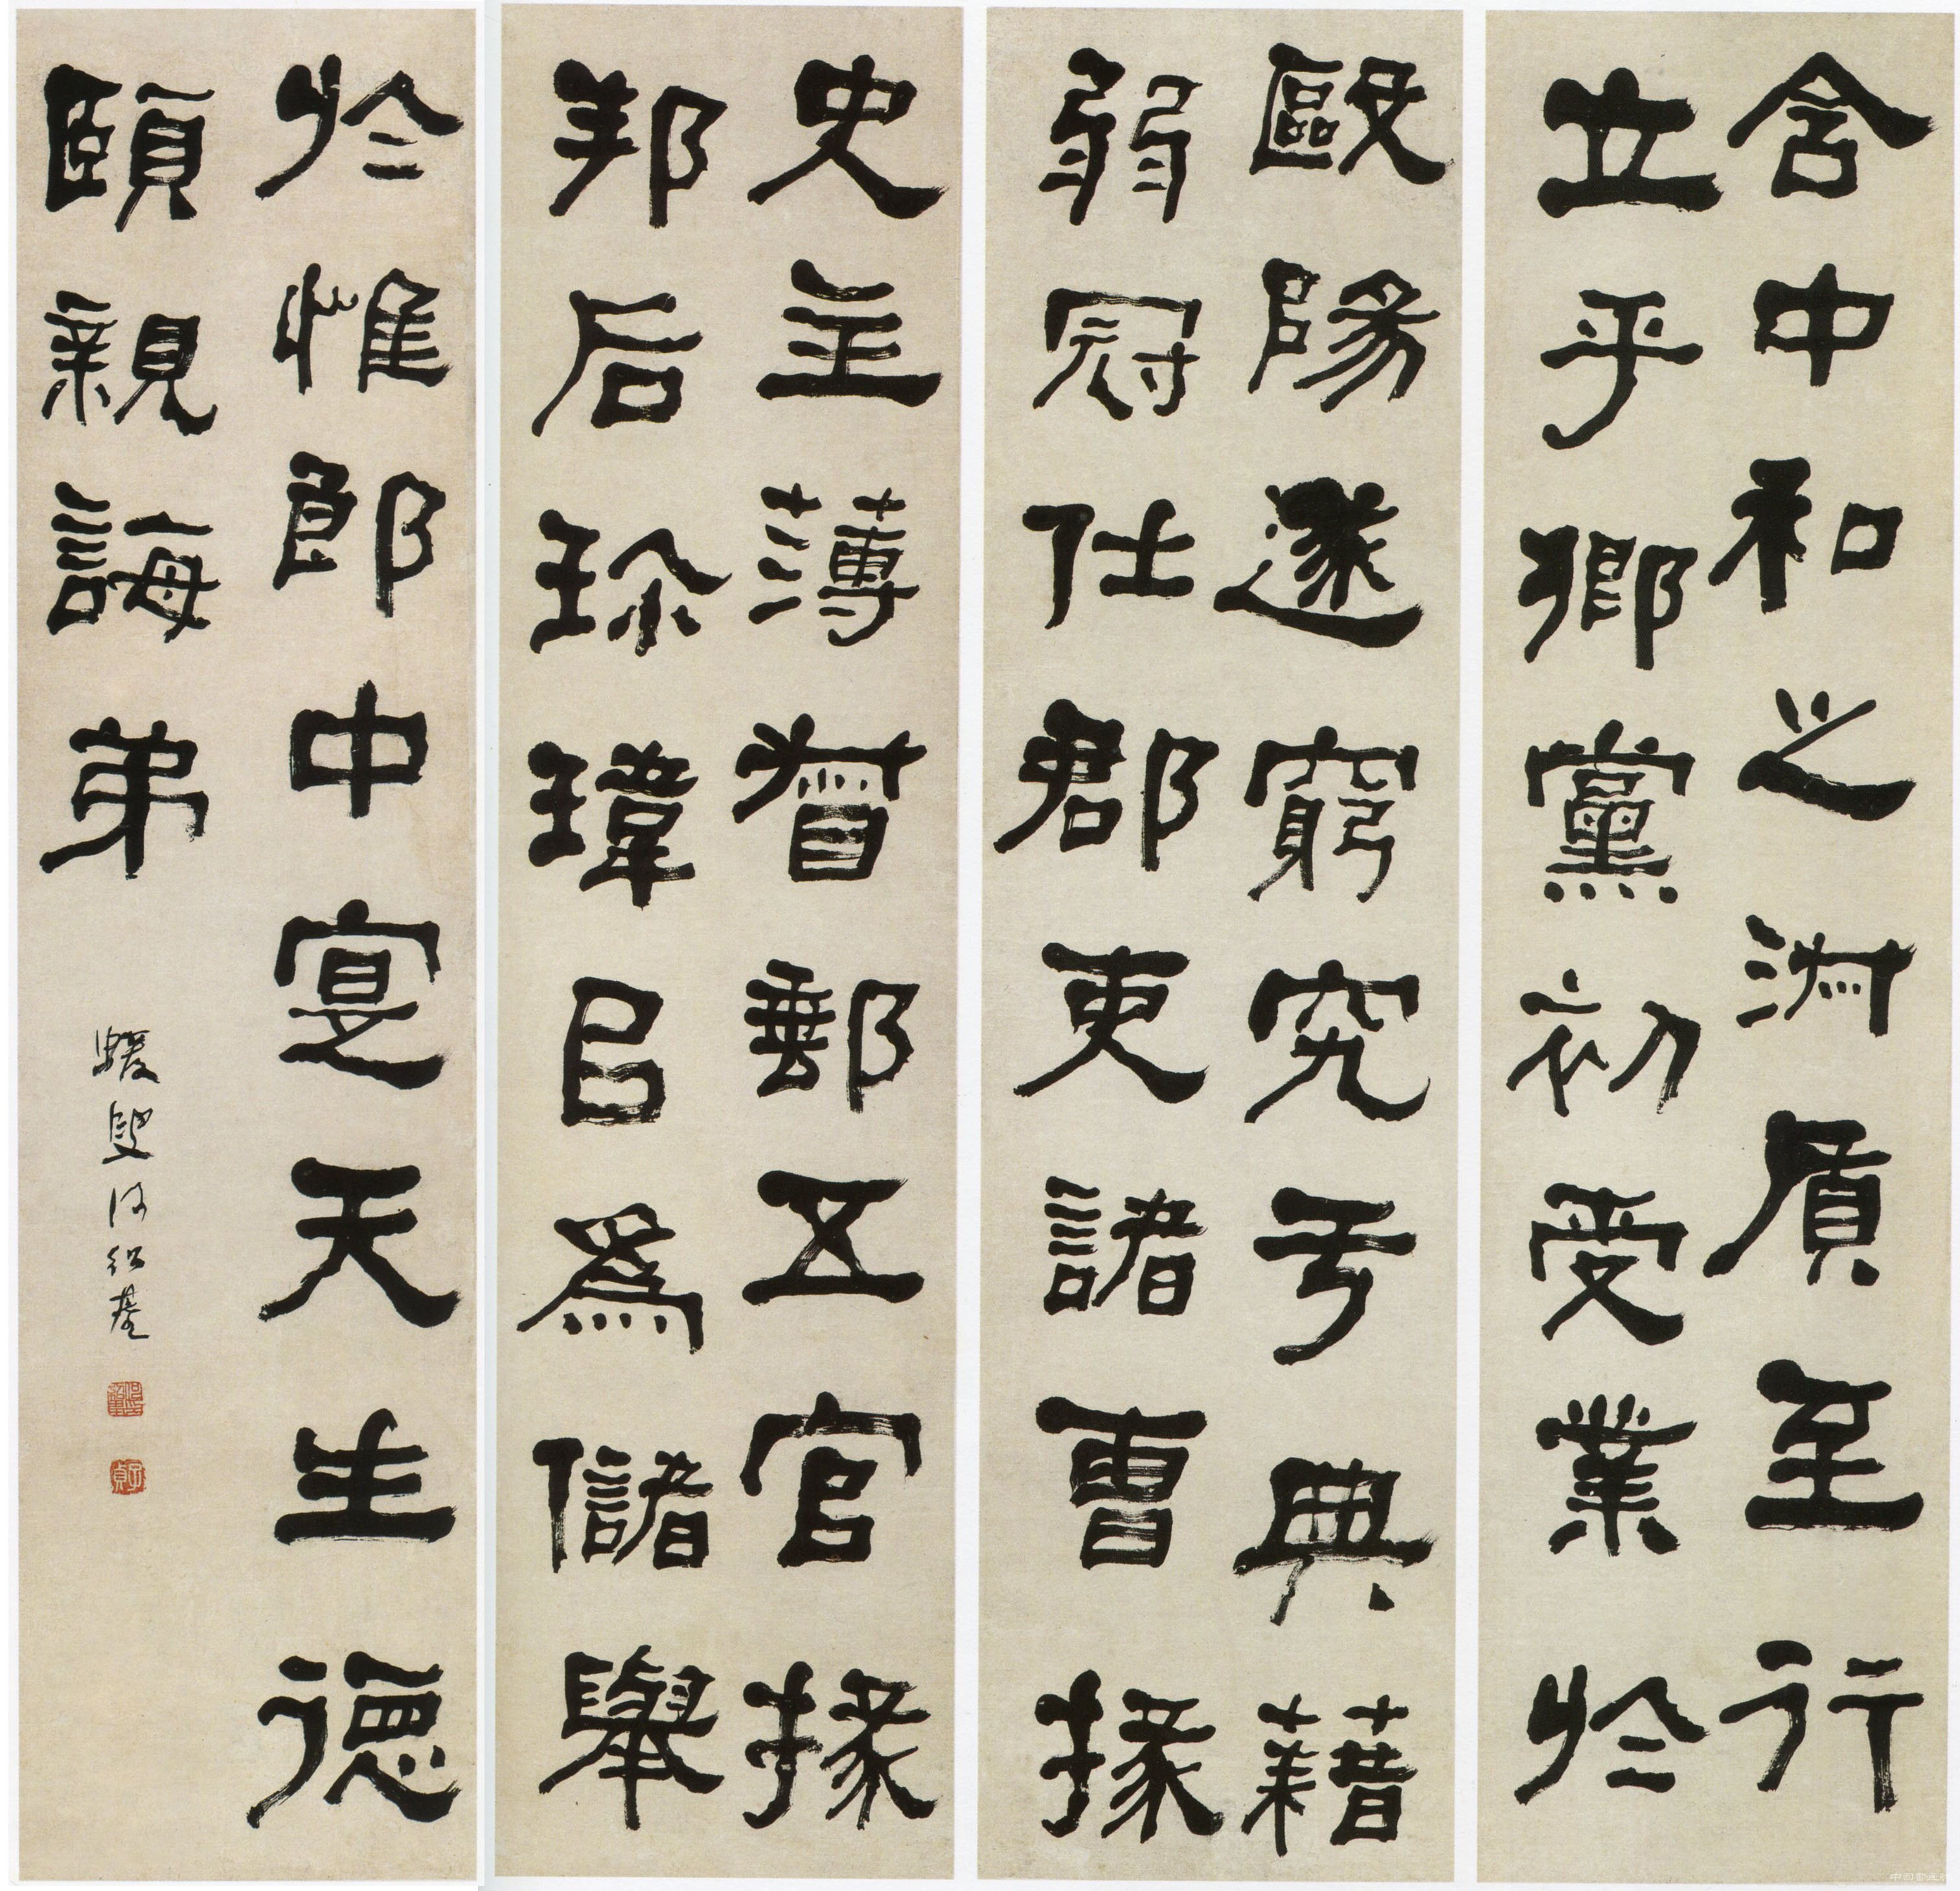 含中和之淑質至行
立乎鄉黨初受業於
歐陽遂窮究于典藉
弱冠仕郡吏諸曹掾
史主薄督郵五官掾
邦后珍瑋以為儲舉
於惟郎中寔天生德
頤親誨弟
蝯叟何紹基